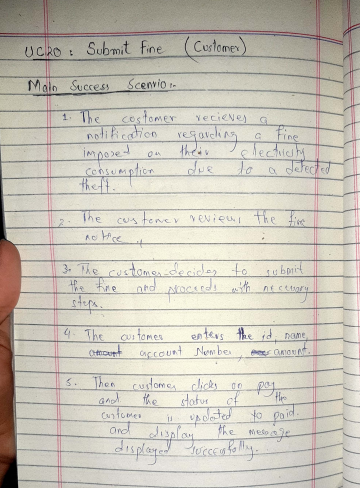 UC20 : Submit Fine (Customer)
Main Success Scenrio:-
1. The costomer recieves a
notification regarding a fine
imposed on their electricity
consumption due to a detected
theft.
2. The customer reviews the fine
notice.
3. The customer decides to submit
the fine and proceeds with necessary
steps.
4. The customer enters the id, name,
account Number, amount.
5. Then customer clicks on pay
and the status of the
customer is updated to paid.
and display the message
displayed successfully.